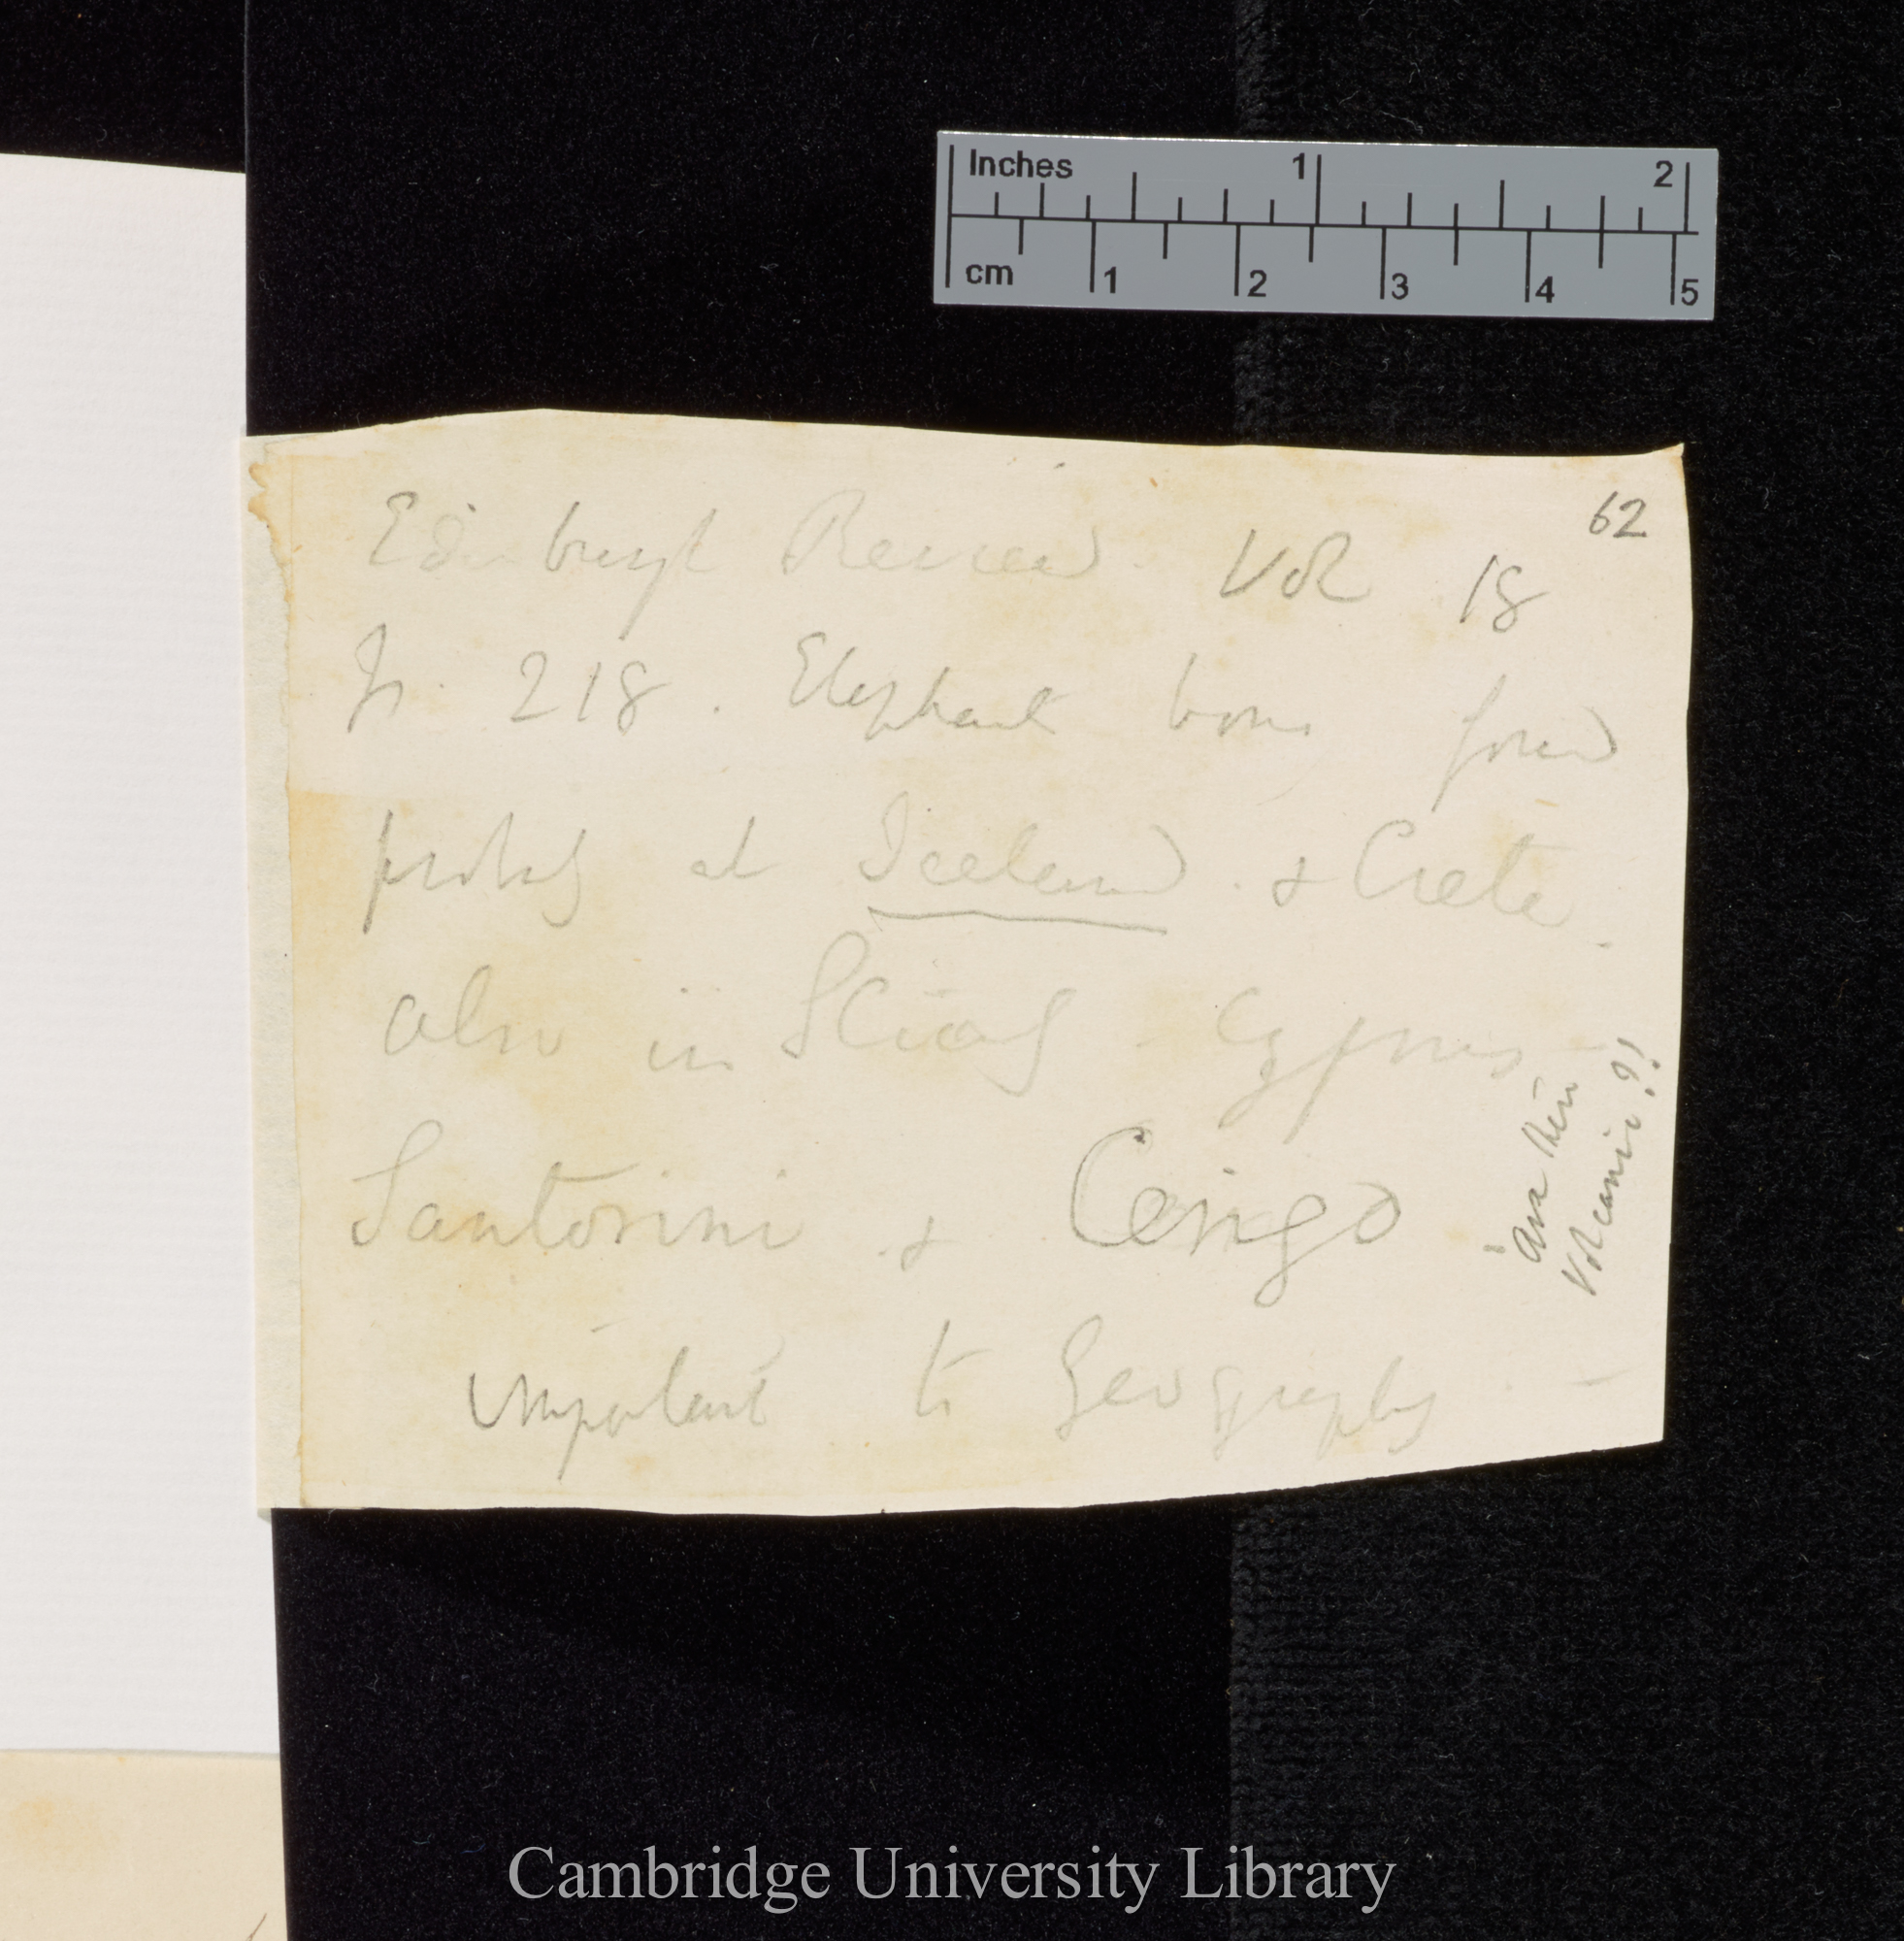 Inches 1 2
cm 1 2 3 4 5
62
Edinburgh Review. Vol 18
p. 218. Elephant bones found
probably at Iceland. & Crete.
also in Sicily - Cyprus -
Santorini & Cerigo
are there
Volcanic?!
important to Geography -
Cambridge University Library